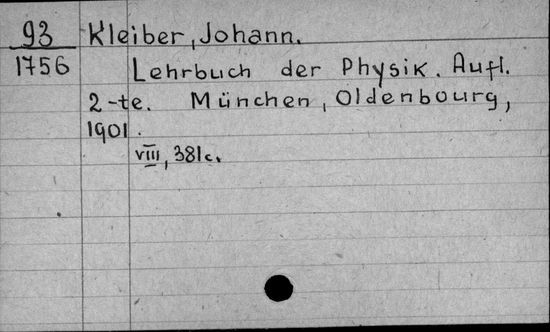 93 Kleiber, Johann.
1756 Lehrbuch der Physik. Aufl.
2-te. München, Oldenbourg,
1901.
VIII, 381c.